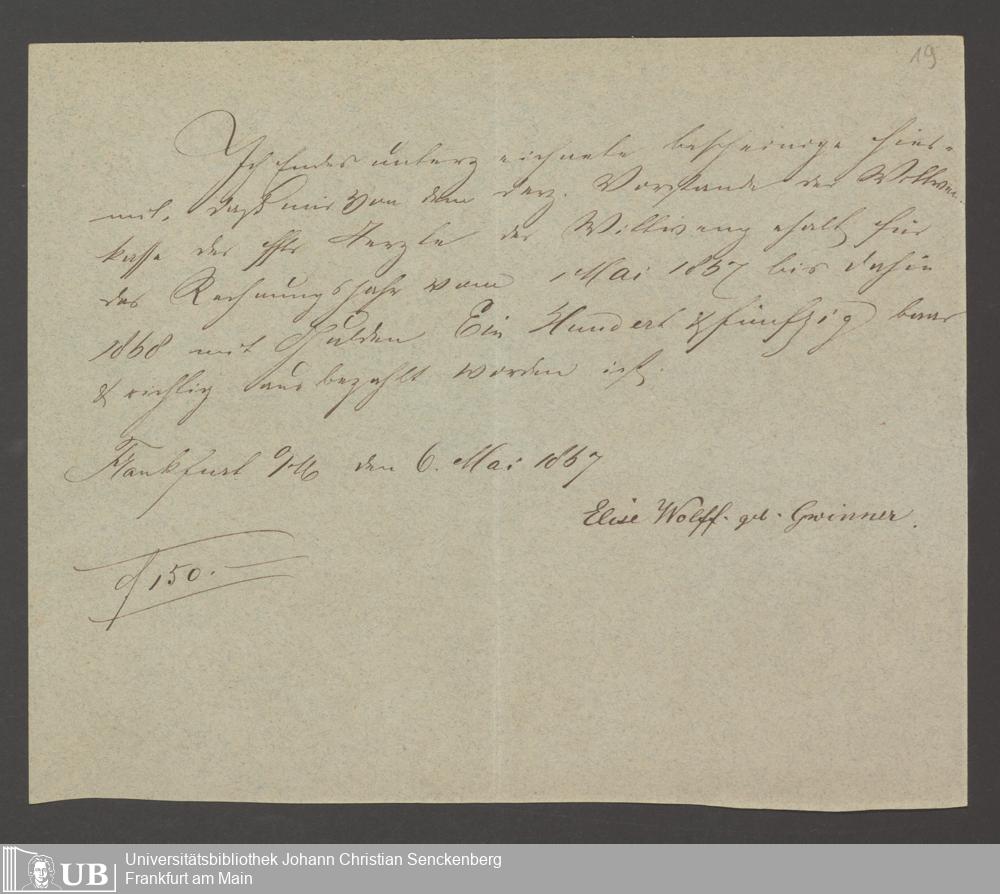 19
Ich Endes unterzeichnete bescheinige hier-
mit, daß mir von dem derz. Vorstande der Wittwen-
kasse der Aerzte der Wittwengehalt für
das Rechnungsjahr vom 1 Mai 1867 bis dahin
1868 mit Gulden Ein Hundert & fünfzig baar
& richtig ausbezahlt worden ist.
Frankfurt a/M den 6. Mai 1867
Elise Wolff. geb. Gwinner.
f 150.-
UB Universitätsbibliothek Johann Christian Senckenberg
Frankfurt am Main